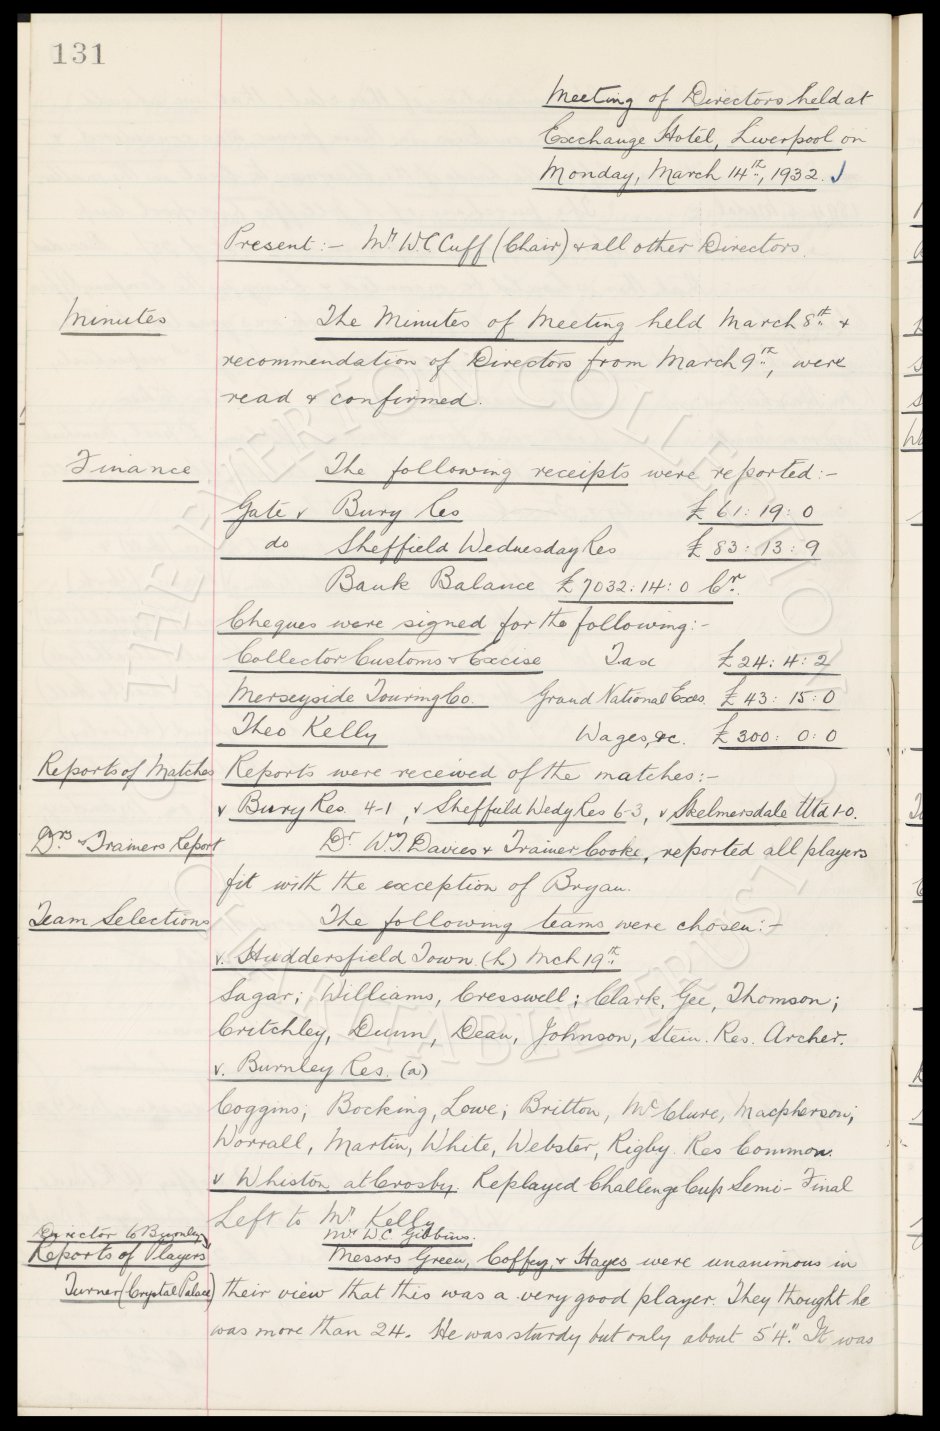 131
Meeting of Directors held at
Exchange Hotel, Liverpool on
Monday, March 14th, 1932.
Present :- Mr WC Cuff (Chair) & all other Directors.
Minutes The Minutes of Meeting held March 8th &
recommendation of Directors from March 9th, were
read & confirmed.
Finance The following receipts were reported :-
Gate v Bury Res £ 61 : 19 : 0
do Sheffield Wednesday Res £ 83 : 13 : 9
Bank Balance £7032 : 14 : 0 Cr.
Cheques were signed for the following :-
Collector Customs & Excise Tax £24 : 4 : 2
Merseyside Touring Co. Grand National Exes. £43 : 15 : 0
Theo Kelly Wages, &c. £300 : 0 : 0
Reports of Matches Reports were received of the matches :-
v Bury Res 4-1, v Sheffield Wedy Res 6-3, v Skelmersdale Utd 1-0.
Drs & Trainers Report Dr WJ Davies & Trainer Cooke, reported all players
fit with the exception of Bryan.
Team Selections The following teams were chosen :-
v. Huddersfield Town (h) Mch 19th
Sagar; Williams, Cresswell; Clark, Gee, Thomson;
Critchley, Dunn, Dean, Johnson, Stein. Res. Archer.
v. Burnley Res. (a)
Coggins; Bocking, Lowe; Britton, McClure, Macpherson;
Worrall, Martin, White, Webster, Rigby. Res Common.
v Whiston at Crosby. Replayed Challenge Cup Semi-Final
Left to Mr Kelly
Director to Burnley Mr WC Gibbins.
Reports of Players Messrs Green, Coffey, & Hayes were unanimous in
Turner (Crystal Palace) their view that this was a very good player. They thought he
was more than 24. He was sturdy but only about 5'4". It was
THE EVERTON COLLECTION CHARITABLE TRUST